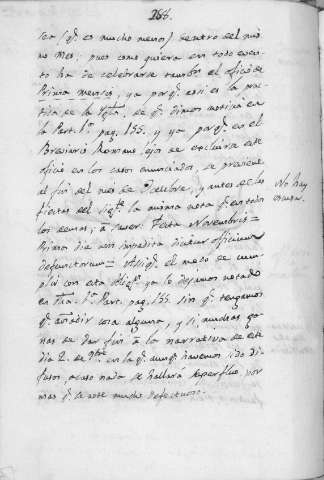 286.
sea (q.e es mucho menos) dentro del mis
no mes; pues como quiera en todo even
to ha de celebrarse tambn. el oficio de
Prima mensis, ya porq.e assi es la prac
tica de la Ygla. de q.e dimos noticia en
la Part. 1.a pag. 155. y ya porq.e en el
Breviario Romano, lejos de excluirse este
oficio en los casos enunciados, se previene
al fin del mes de Octubre, y antes de las
fiestas del sigte. la misma nota q.e en todos
los demas; à saver: Festa Novembris =
Primo die non impedita dicitur officium
defunctorum =
el modo de cum
plir con esta ya lo dejamos notado
en dha. 1.a Part. pag. 155. sin q.e tengamos
q.e añadir cosa alguna, y si muchas ga
nas de dar fin à la narrativa de este
dia 2. de 9bre. en la q.e aunq.e havemos sido di
fusos, acaso nada se hallará superfluo, por
mas q.e se note mucho defectuoso.
No hay